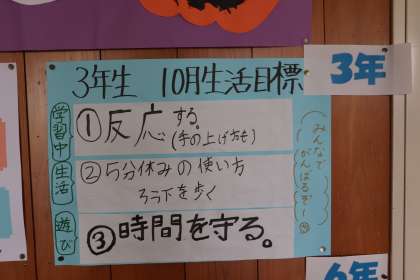 3年生 10月生活目標
3年
学習中
①反応する。
(手の上げ方も)
生活
②5分休みの使い方
ろう下を歩く
遊び
③時間を守る。
みんなで
がんばるぞー
6年